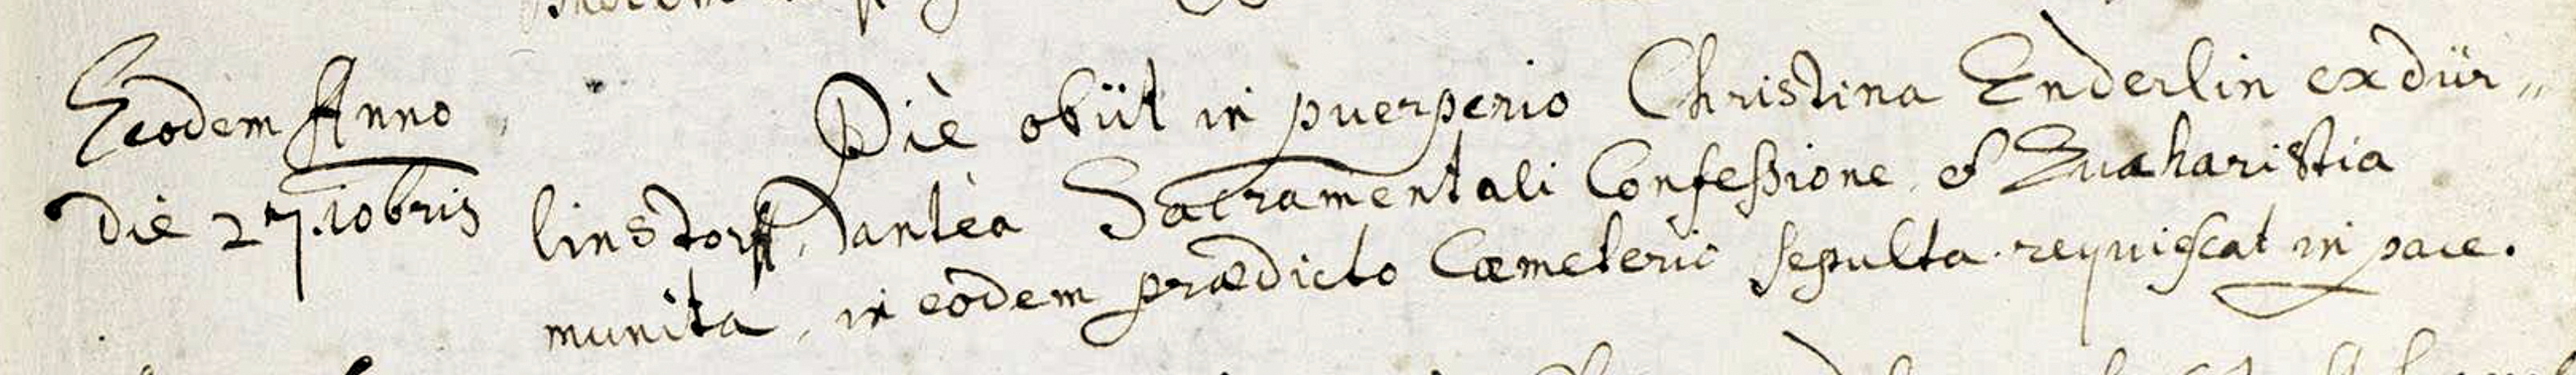 Eodem Anno
die 27. 10bris
Piè obiit in puerperio Christina Enderlin ex dür„
linstorff, antea Sacramentali Confeßione et Eucharistia
munita, in eodem prædicto Cœmeterio sepulta. requiescat in pace.